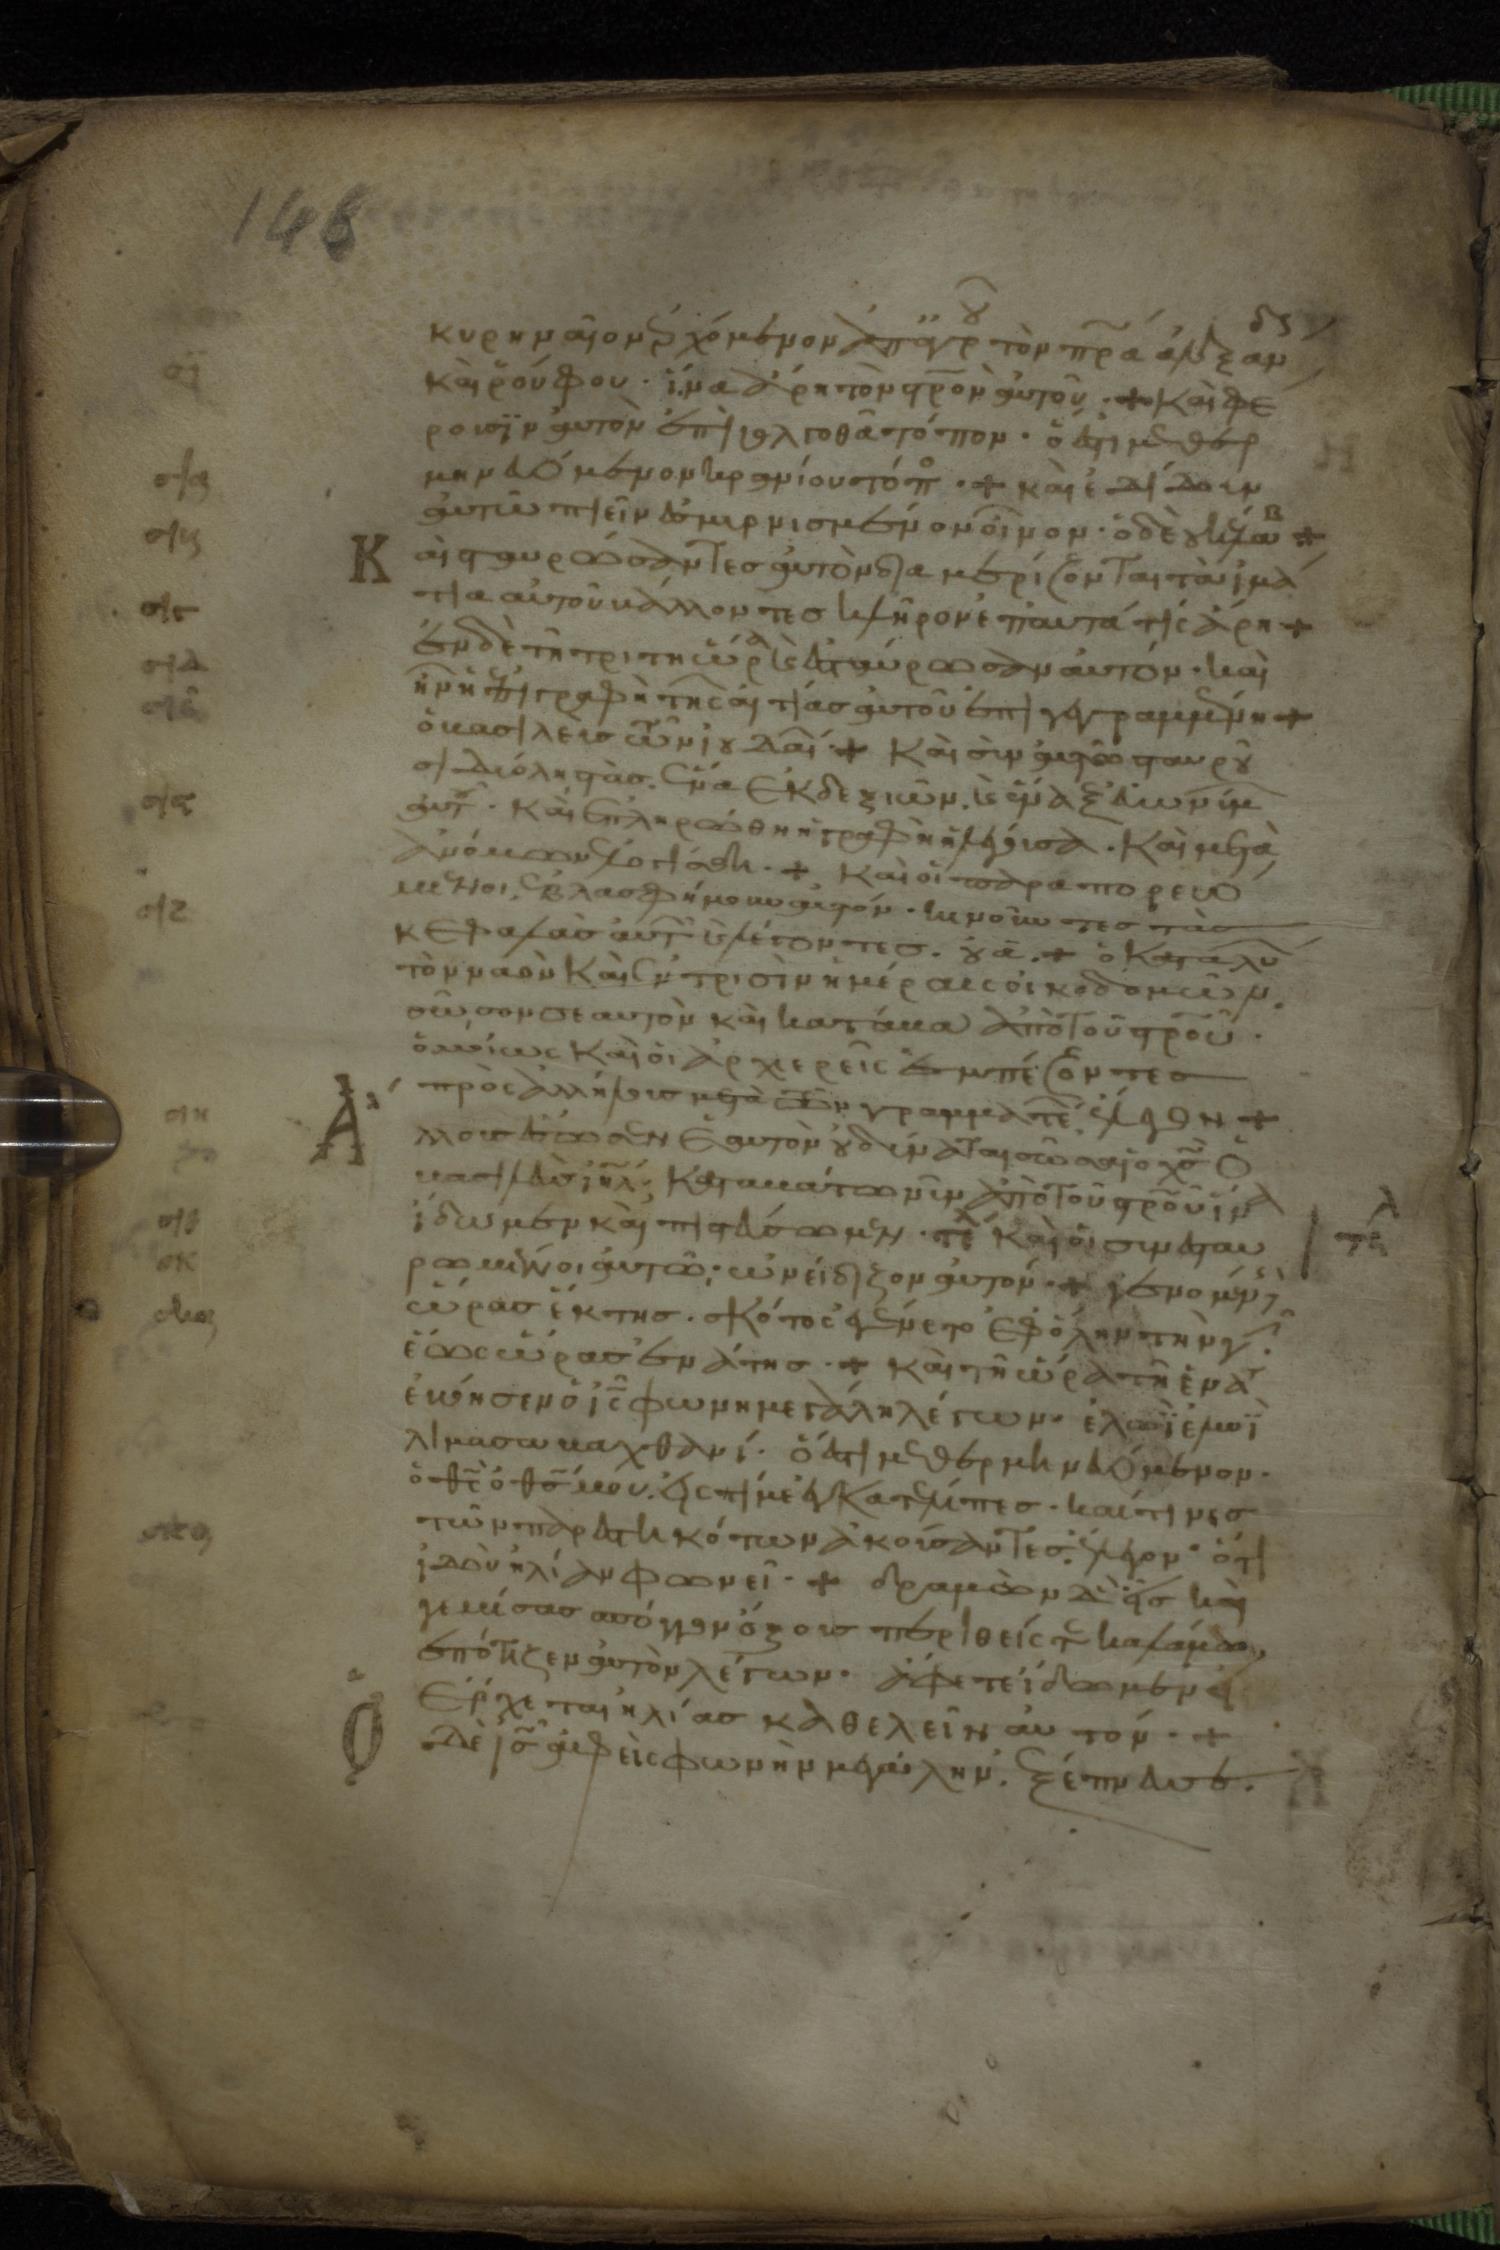 148
κυρηναῖον ἐρχόμενον ἀπ ἀγροῦ τὸν πρα ἀλεξαν
καὶ ῥούφου · ἵνα ἄρη τὸν στρον αὐτοῦ · + Καὶ φέ
ρουσϊν αὐτὸν ἐπὶ γολγοθᾶ τόπον · ὅ ἐστι μεθερ
μηνευόμενον κρανίου τόπο · + καὶ ἐδίδουν
αὐτῶ πιεῖν ἐσμυρνισμένον οἶνον · ὁ δὲ οὐκ ἔλαβ +
Καὶ σταυρώσαντες αὐτὸν διαμερίζονται τὰ ἱμά
τια αὐτοῦ βάλλοντες κλῆρον ἐπ αυτά τίς ἄρη +
ἐν δὲ τῆ τριτη ὥρα ἐσταύρωσαν αυτόν · και
ἦν ἡ ἐπιγραφὴ τῆς αἰτίας αὐτοῦ ἐπιγεγραμμένη +
ὁ βασιλεὺς τῶν ἰουδαί · + Καὶ σὺν αὐτῶ σταυροῦ
σι δύο ληστάς · ἕνα ἐκ δεξιῶν · καὶ ἕνα ἐξ εὐωνύμ
αὐτ · καὶ ἐπληρώθη ἡ γραφὴ ἡ λέγουσα · Καὶ μετὰ
ἀνόμων ἐλογίσθη · + Καὶ οἱ παραπορευό
μενοι ἐβλασφήμουν αὐτόν · κινοῦντες τὰς
κεφαλὰς αὐτ καὶ λέγοντες · οὐά · + ὁ καταλύ
τὸν ναὸν καὶ ἐν τρισὶν ἡμέραις οἰκοδομῶν ·
σῶσον σεαυτὸν καὶ κατάβα ἀπὸ τοῦ στροῦ ·
ὁμοίως Καὶ οἱ ἀρχιερεῖς ἐμπέζοντες
πρὸς ἀλλήλους μετὰ τῶν γραμματέ ἔλεγον +
Ἄλλους ἔσωσεν ἑαυτὸν οὐ δύναται σῶσαι ὁ χς ὁ
βασιλεὺς ἰηλ · Καταβάτω νῦν ἀπὸ τοῦ στροῦ ἵνα
ἴδωμεν καὶ πιστεύσωμεν · τε Καὶ οἱ συνεσταυ
ρωμένοι αὐτῶ · ὠνείδιζον αὐτόν · + γενομέν
ὥρας ἕκτης · σκότος ἐγένετο ἐφ ὅλην τὴν γ
ἕως ὥρας ἐννάτης · + καὶ τῆ ὥρα τῆ ἐνατ
ἐβόησεν ὁ ις φωνη μεγάλη λέγων · ἐλωῒ ἐλωῒ
λιμα σαβαχθανί · ὅ ἐστι μεθερμηνευόμενον ·
ὁ θς ὁ θς μου · εἰς τί με ἐγκατέλιπες · καί τινες
τῶν παρεστηκότων ἀκούσαντες ἔλεγον · ὅτι
ἰδοὺ ἠλίαν φωνεῖ · + δραμὼν δὲ εἷς καὶ
γεμίσας σπόγγον ὄξους περιθείς τε καλάμω
ἐπότιζεν αὐτὸν λέγων · ἄφετε ἴδωμεν εἰ
ἔρχεται ἠλίας καθελεῖν αὐτόν · +
Ὁ δὲ ις ἀφεὶς φωνὴν μεγάλην · ἐξέπνευσε ·